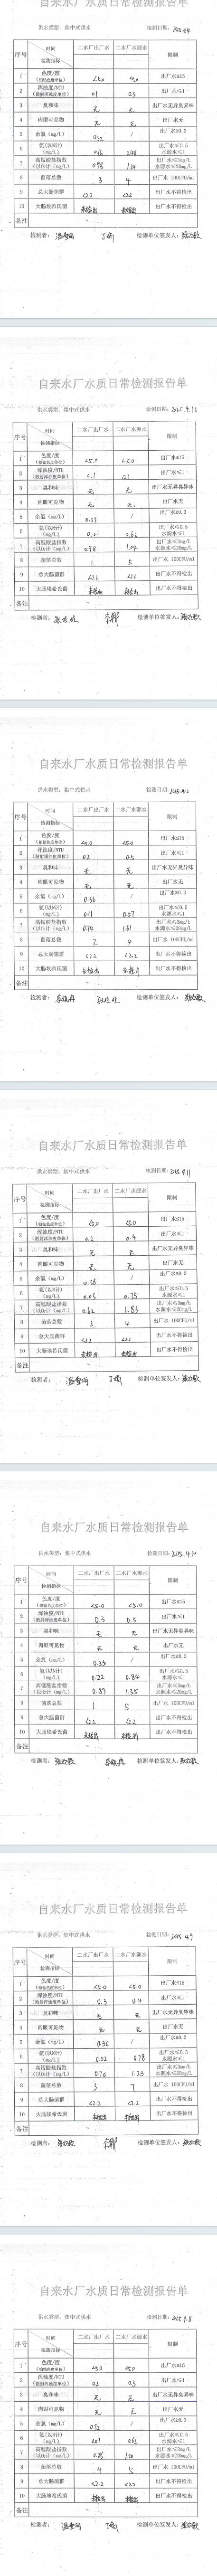 自来水厂水质日常检测报告单
供水类型：集中式供水 检测日期：
序号 时间 检测指标 二水厂出厂水 二水厂水源水 限制
1 色度/度（铂钴色度单位） <5.0 <5.0 出厂水≤15
2 浑浊度/NTU（散射浑浊度单位） 0.1 0.3 出厂水≤1
3 臭和味 无 无 出厂水无异臭异味
4 肉眼可见物 无 无 出厂水无
5 余氯（mg/L） / 出厂水≥0.3
6 氨（以N计）（mg/L） 出厂水≤0.5 水源水≤1
7 高锰酸盐指数（以O₂计）（mg/L） 出厂水≤3mg/L 水源水≤20mg/L
8 菌落总数 3 4 出厂水 100CFU/ml
9 总大肠菌群 <2.2 <2.2 出厂水不得检出
10 大肠埃希氏菌 未检出 未检出 出厂水不得检出
备注
检测者： 检测单位签发人：
自来水厂水质日常检测报告单
供水类型：集中式供水 检测日期：2025.4.13
序号 时间 检测指标 二水厂出厂水 二水厂水源水 限制
1 色度/度（铂钴色度单位） <5.0 <5.0 出厂水≤15
2 浑浊度/NTU（散射浑浊度单位） 0.1 出厂水≤1
3 臭和味 无 无 出厂水无异臭异味
4 肉眼可见物 无 无 出厂水无
5 余氯（mg/L） 0.33 / 出厂水≥0.3
6 氨（以N计）（mg/L） 0.21 0.62 出厂水≤0.5 水源水≤1
7 高锰酸盐指数（以O₂计）（mg/L） 0.98 出厂水≤3mg/L 水源水≤20mg/L
8 菌落总数 1 5 出厂水 100CFU/ml
9 总大肠菌群 <2.2 <2.2 出厂水不得检出
10 大肠埃希氏菌 未检出 未检出 出厂水不得检出
备注
检测者： 检测单位签发人：
自来水厂水质日常检测报告单
供水类型：集中式供水 检测日期：2025.4.12
序号 时间 检测指标 二水厂出厂水 二水厂水源水 限制
1 色度/度（铂钴色度单位） <5.0 <5.0 出厂水≤15
2 浑浊度/NTU（散射浑浊度单位） 0.2 0.5 出厂水≤1
3 臭和味 无 无 出厂水无异臭异味
4 肉眼可见物 无 无 出厂水无
5 余氯（mg/L） 0.36 / 出厂水≥0.3
6 氨（以N计）（mg/L） 0.11 0.57 出厂水≤0.5 水源水≤1
7 高锰酸盐指数（以O₂计）（mg/L） 0.74 1.61 出厂水≤3mg/L 水源水≤20mg/L
8 菌落总数 2 4 出厂水 100CFU/ml
9 总大肠菌群 <2.2 <2.2 出厂水不得检出
10 大肠埃希氏菌 未检出 未检出 出厂水不得检出
备注
检测者： 检测单位签发人：
自来水厂水质日常检测报告单
供水类型：集中式供水 检测日期：2025.4.11
序号 时间 检测指标 二水厂出厂水 二水厂水源水 限制
1 色度/度（铂钴色度单位） <5.0 <5.0 出厂水≤15
2 浑浊度/NTU（散射浑浊度单位） 0.2 0.4 出厂水≤1
3 臭和味 无 无 出厂水无异臭异味
4 肉眼可见物 无 无 出厂水无
5 余氯（mg/L） / 出厂水≥0.3
6 氨（以N计）（mg/L） 0.05 0.75 出厂水≤0.5 水源水≤1
7 高锰酸盐指数（以O₂计）（mg/L） 0.62 1.83 出厂水≤3mg/L 水源水≤20mg/L
8 菌落总数 3 4 出厂水 100CFU/ml
9 总大肠菌群 <2.2 <2.2 出厂水不得检出
10 大肠埃希氏菌 未检出 未检出 出厂水不得检出
备注
检测者： 检测单位签发人：
自来水厂水质日常检测报告单
供水类型：集中式供水 检测日期：2025.4.10
序号 时间 检测指标 二水厂出厂水 二水厂水源水 限制
1 色度/度（铂钴色度单位） <5.0 <5.0 出厂水≤15
2 浑浊度/NTU（散射浑浊度单位） 0.3 0.5 出厂水≤1
3 臭和味 无 无 出厂水无异臭异味
4 肉眼可见物 无 无 出厂水无
5 余氯（mg/L） 0.33 / 出厂水≥0.3
6 氨（以N计）（mg/L） 0.22 0.84 出厂水≤0.5 水源水≤1
7 高锰酸盐指数（以O₂计）（mg/L） 0.89 1.35 出厂水≤3mg/L 水源水≤20mg/L
8 菌落总数 1 5 出厂水 100CFU/ml
9 总大肠菌群 <2.2 <2.2 出厂水不得检出
10 大肠埃希氏菌 未检出 未检出 出厂水不得检出
备注
检测者： 检测单位签发人：
自来水厂水质日常检测报告单
供水类型：集中式供水 检测日期：2025.4.9
序号 时间 检测指标 二水厂出厂水 二水厂水源水 限制
1 色度/度（铂钴色度单位） <5.0 <5.0 出厂水≤15
2 浑浊度/NTU（散射浑浊度单位） 0.3 0.4 出厂水≤1
3 臭和味 无 无 出厂水无异臭异味
4 肉眼可见物 无 无 出厂水无
5 余氯（mg/L） 0.36 / 出厂水≥0.3
6 氨（以N计）（mg/L） 0.02 0.78 出厂水≤0.5 水源水≤1
7 高锰酸盐指数（以O₂计）（mg/L） 0.76 1.23 出厂水≤3mg/L 水源水≤20mg/L
8 菌落总数 3 7 出厂水 100CFU/ml
9 总大肠菌群 <2.2 <2.2 出厂水不得检出
10 大肠埃希氏菌 未检出 未检出 出厂水不得检出
备注
检测者： 检测单位签发人：
自来水厂水质日常检测报告单
供水类型：集中式供水 检测日期：2025.4.8
序号 时间 检测指标 二水厂出厂水 二水厂水源水 限制
1 色度/度（铂钴色度单位） <5.0 <5.0 出厂水≤15
2 浑浊度/NTU（散射浑浊度单位） 0.2 0.3 出厂水≤1
3 臭和味 无 无 出厂水无异臭异味
4 肉眼可见物 无 无 出厂水无
5 余氯（mg/L） / 出厂水≥0.3
6 氨（以N计）（mg/L） 出厂水≤0.5 水源水≤1
7 高锰酸盐指数（以O₂计）（mg/L） 出厂水≤3mg/L 水源水≤20mg/L
8 菌落总数 4 5 出厂水 100CFU/ml
9 总大肠菌群 <2.2 <2.2 出厂水不得检出
10 大肠埃希氏菌 未检出 未检出 出厂水不得检出
备注
检测者： 检测单位签发人：